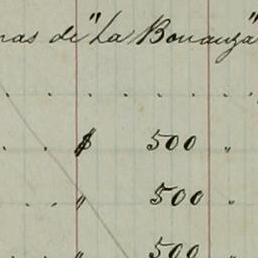 nas de "La Bonanza"
. . . . . . .
. . $ 500 "
. . " 500 "
. " 500 "